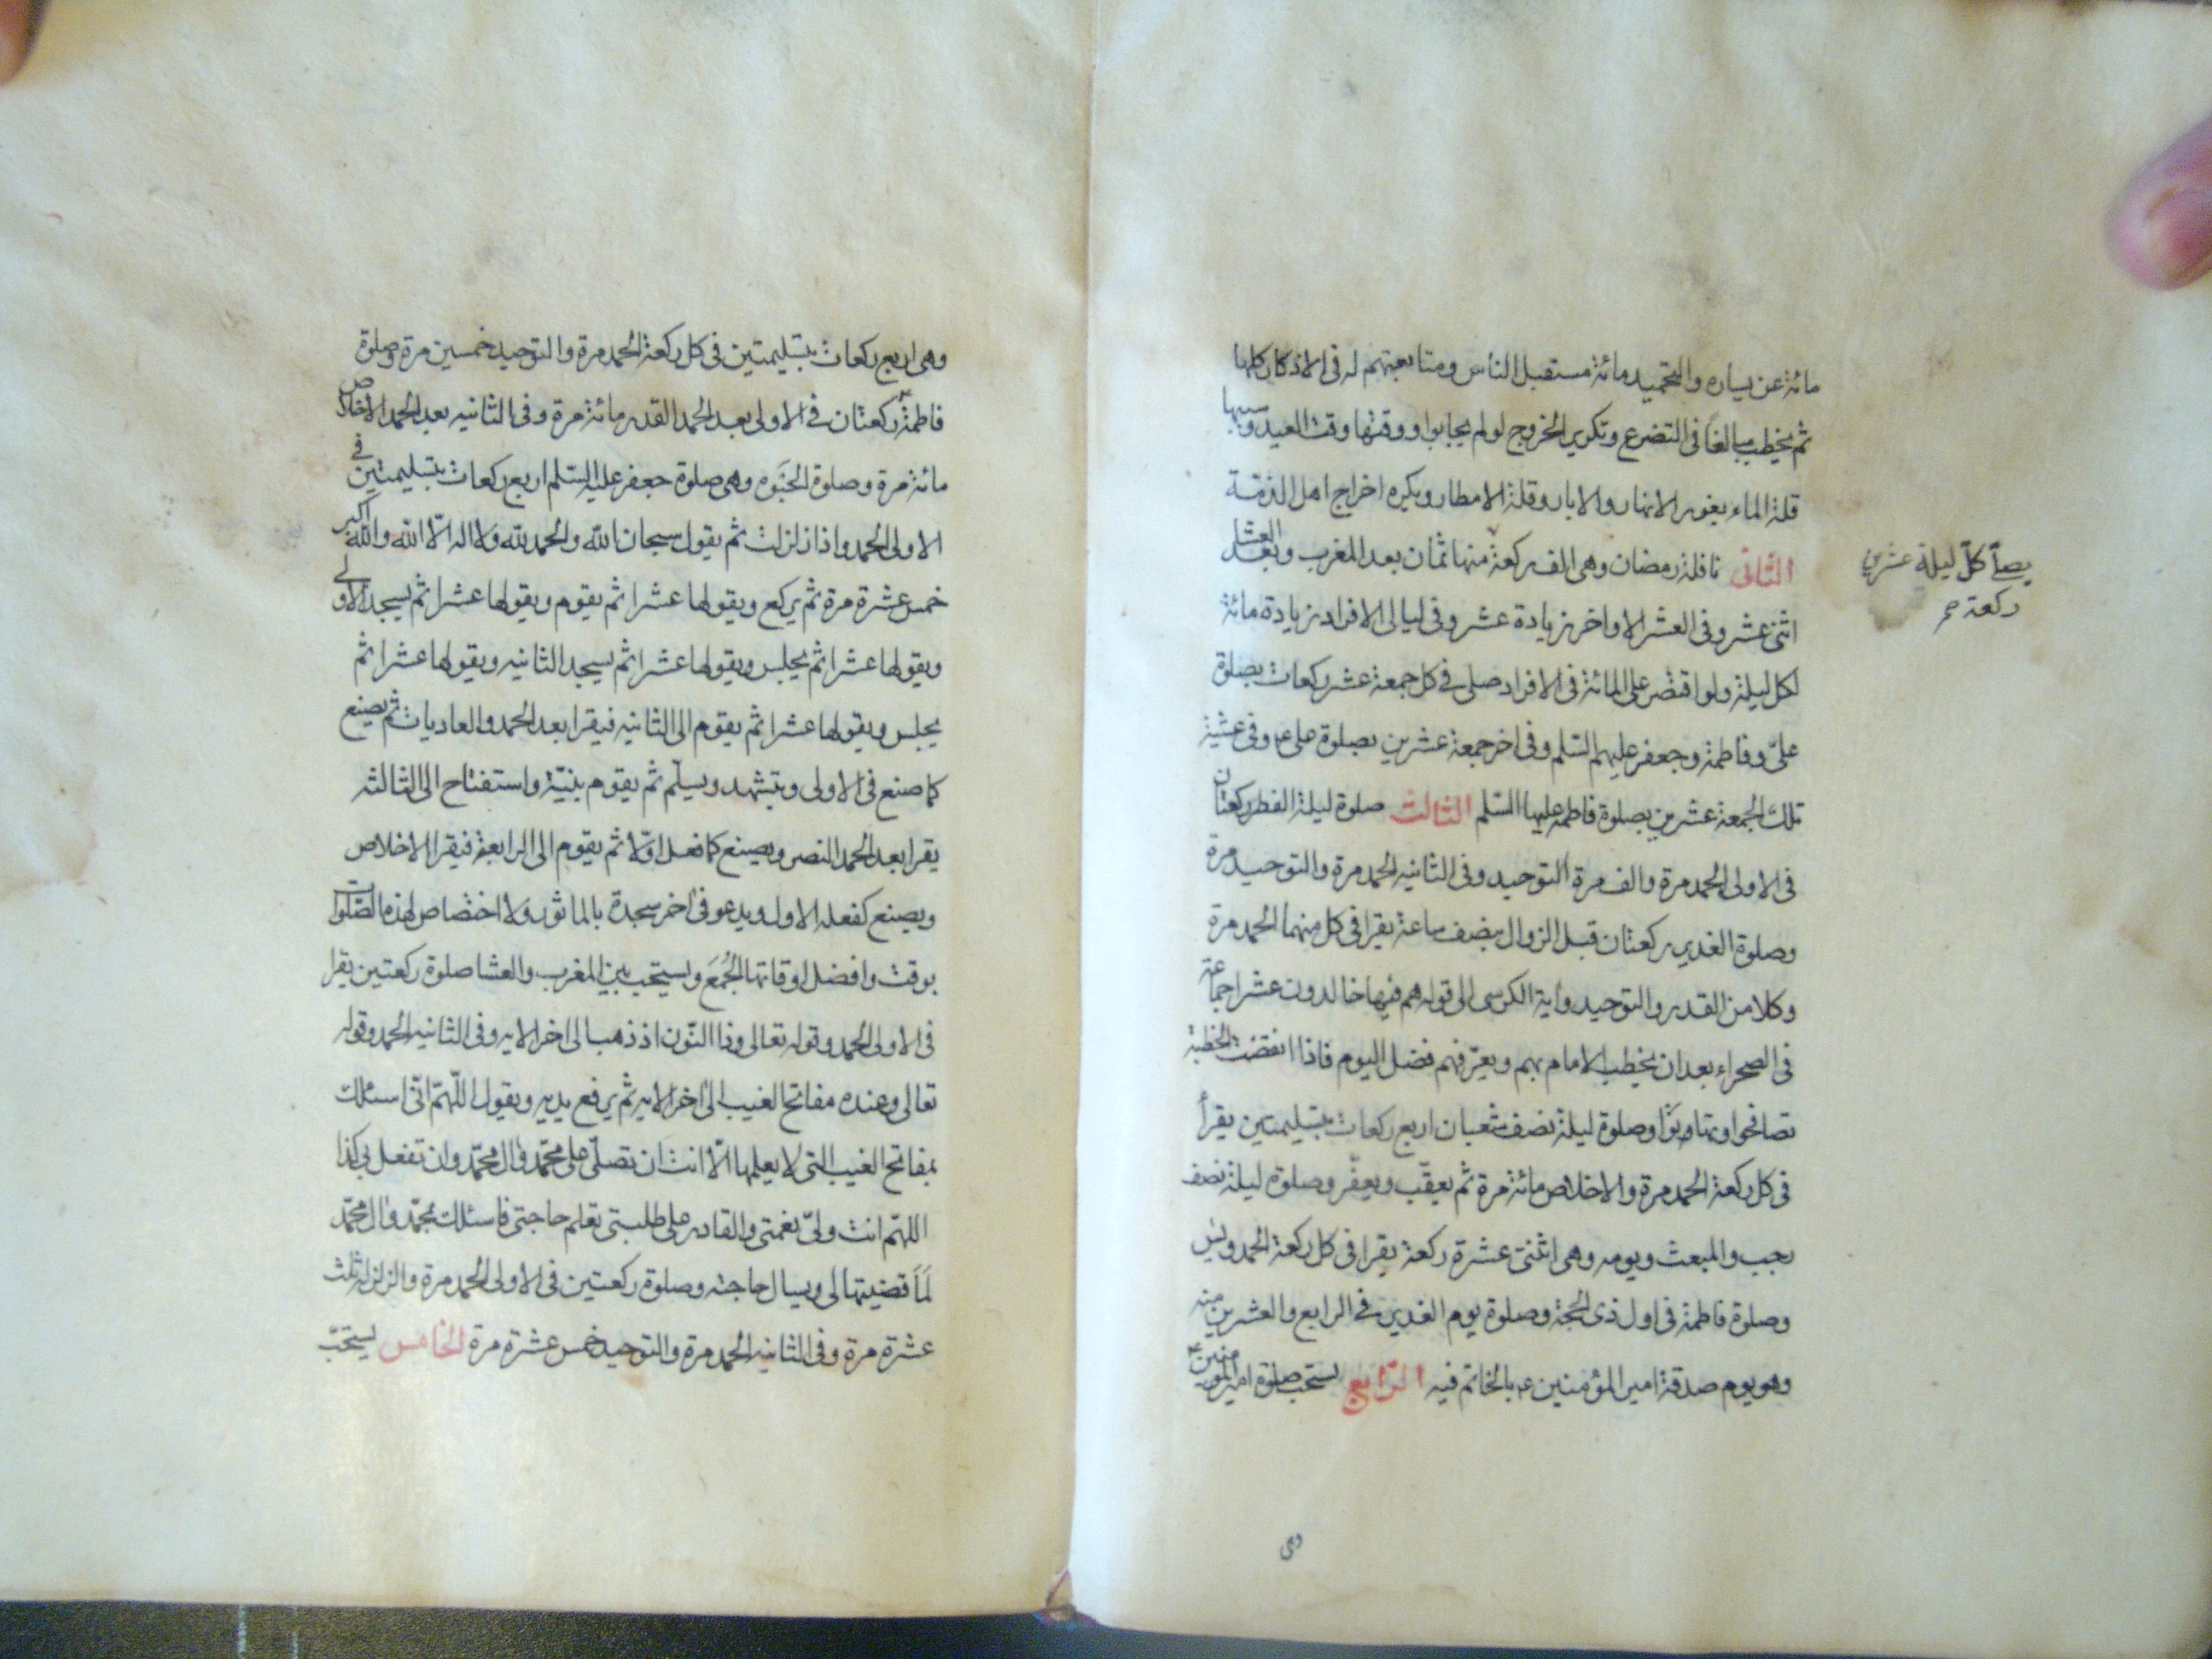 مائة عن يساره والتحميد مائة مستقبل الناس ومتابعتهم له فى الاذكار كلها
ثم يخطب مبالغا فى التضرع وتكرير الخروج لو لم يجابوا ووقتها وقت العيد وسببها
قلة الماء بغور الانهار والابار وقلة الامطار ويكره اخراج اهل الذمة
الثانى نافلة رمضان وهى الف ركعة منها ثمان بعد المغرب وبعد العشا
اثنى عشر وفى العشر الاواخر زيادة عشر وفى ليالى الافراد زيادة مائة
لكل ليلة ولو اقتصر على المائة فى الافراد صلى فى كل جمعة عشر ركعات بصلوة
علىّ وفاطمة وجعفر عليهم السّلم وفى اخر جمعة عشرين بصلوة على ع وفى عشية
تلك الجمعة عشرين بصلوة فاطمة عليها السّلم الثالث صلوة ليلة الفطر ركعتان
فى الاولى الحمد مرة والف مرة التوحيد وفى الثانيه الحمد مرة والتوحيد مرة
وصلوة الغدير ركعتان قبل الزوال بنصف ساعة يقرا فى كل منهما الحمد مرة
وكلا من القدر والتوحيد وآية الكرسى الى قوله هم فيها خالدون عشرا جماعة
فى الصحراء بعد ان يخطب الامام بهم ويعرّفهم فضل اليوم فاذا انقضت الخطبة
تصافحوا وتهانَوْا وصلوة ليلة نصف شعبان اربع ركعات بتسليمتين يقرأ
فى كل ركعة الحمد مرة والاخلاص مائة مرة ثم يعقّب ويعفّر وصلوة ليلة نصف
رجب والمبعث ويومه وهى اثنتى عشرة ركعة يقرا فى كل ركعة الحمد ويس
وصلوة فاطمة فى اول ذى الحجة وصلوة يوم الغدير فى الرابع والعشرين منه
وهو يوم صدقة امير المؤمنين ع بالخاتم فيه الرّابع يستحب صلوة امير المؤمنين ع
يصلّى كلّ ليلة عشرين
ركعة
وهى
وهى اربع ركعات بتسليمتين فى كل ركعة الحمد مرة والتوحيد خمسين مرة وصلوة
فاطمة ع ركعتان فى الاولى بعد الحمد القدر مائة مرة وفى الثانيه بعد الحمد الاخلاص
مائة مرة وصلوة الحَبْوَه وهى صلوة جعفر عليه السّلم اربع ركعات بتسليمتين فى
الاولى الحمد واذا زلزلت ثم يقول سبحان الله والحمد لله ولا اله الّا الله والله اكبر
خمس عشرة مرة ثم يركع ويقولها عشرا ثم يقوم ويقولها عشرا ثم يسجد الاولى
ويقولها عشرا ثم يجلس ويقولها عشرا ثم يسجد الثانيه ويقولها عشرا ثم
يجلس ويقولها عشرا ثم يقوم الى الثانيه فيقرا بعد الحمد والعاديات ثم يصنع
كما صنع فى الاولى ويتشهد ويسلّم ثم يقوم بنيّة واستفتاح الى الثالثه
يقرا بعد الحمد النصر ويصنع كما فعل اوّلا ثم يقوم الى الرابعة فيقرا الاخلاص
ويصنع كفعله الاول ويدعو فى اخر سجدة بالماثور ولا اختصاص لهذه الصّلوات
بوقت وافضل اوقاتها الجُمَع ويستحب بين المغرب والعشا صلوة ركعتين يقرا
فى الاولى الحمد وقوله تعالى وذا النّون اذ ذهب الى اخر الايه وفى الثانيه الحمد وقوله
تعالى وعنده مفاتح الغيب الى اخر الايه ثم يرفع يديه ويقول اللّهمّ انّى اسئلك
بمفاتح الغيب التى لا يعلمها الّا انت ان تصلّى على محمّد وآل محمّد وان تفعل بى كذا
اللهمّ انت ولىّ نعمتى والقادر على طلبتى تعلم حاجتى فاسئلك بمحمّد وآل محمّد
لَمّا قضيتها لى ويسال حاجته وصلوة ركعتين فى الاولى الحمد مرة والزلزله ثلث
عشرة مرة وفى الثانيه الحمد مرة والتوحيد خمس عشرة مرة الخامس يستحبّ